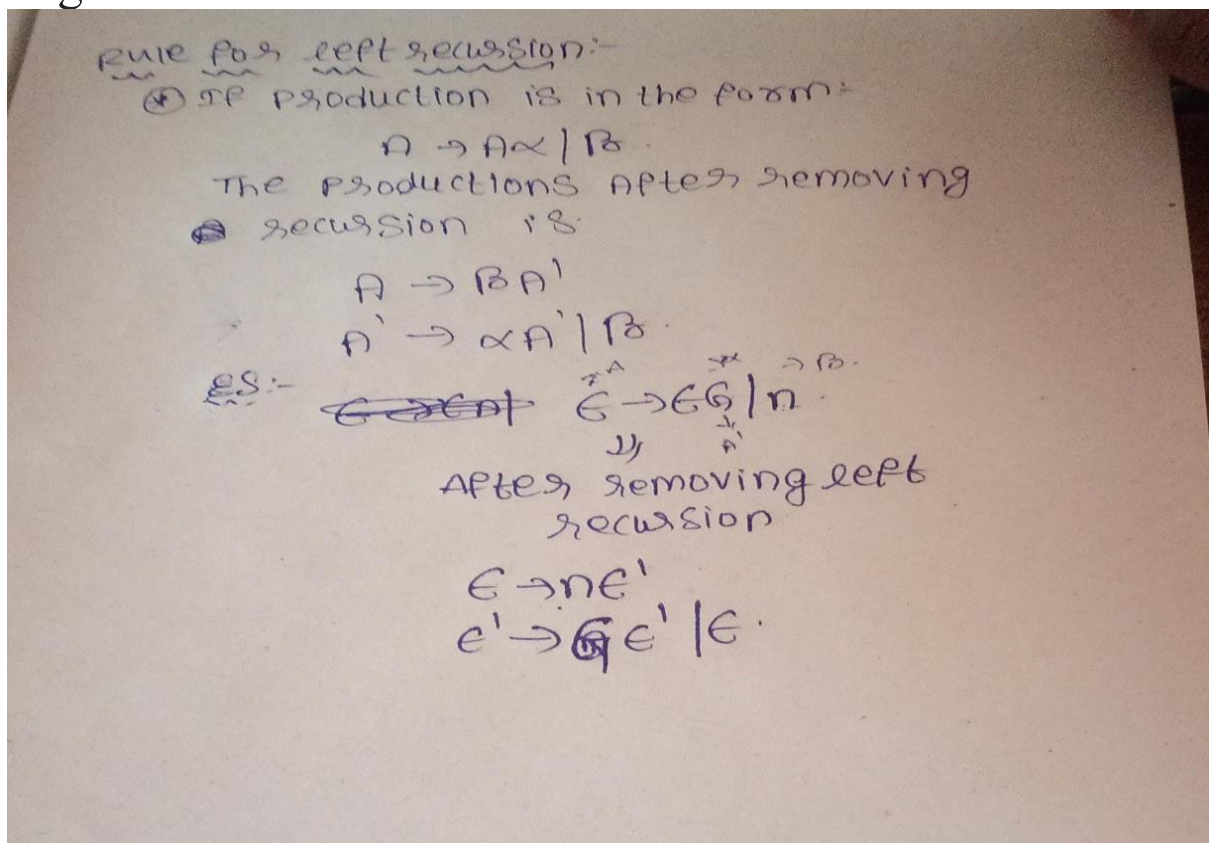 Rule for left recursion:-
* If production is in the form:
A → Aα | B.
The productions After removing
recursion is.
A → BA'
A' → αA' | B.
eg:-
→A →α → B.
E → EG | n.
A'
After removing left
recursion
E → nE'
E' → GE' | E.